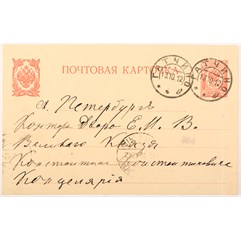 ПОЧТОВАЯ КАРТОЧКА
ГАТЧИНО
ГАТЧИНО
С. Петербургъ
Контора Двора Е. И. В.
Великаго Князя
Константина Константиновича
Канцелярія